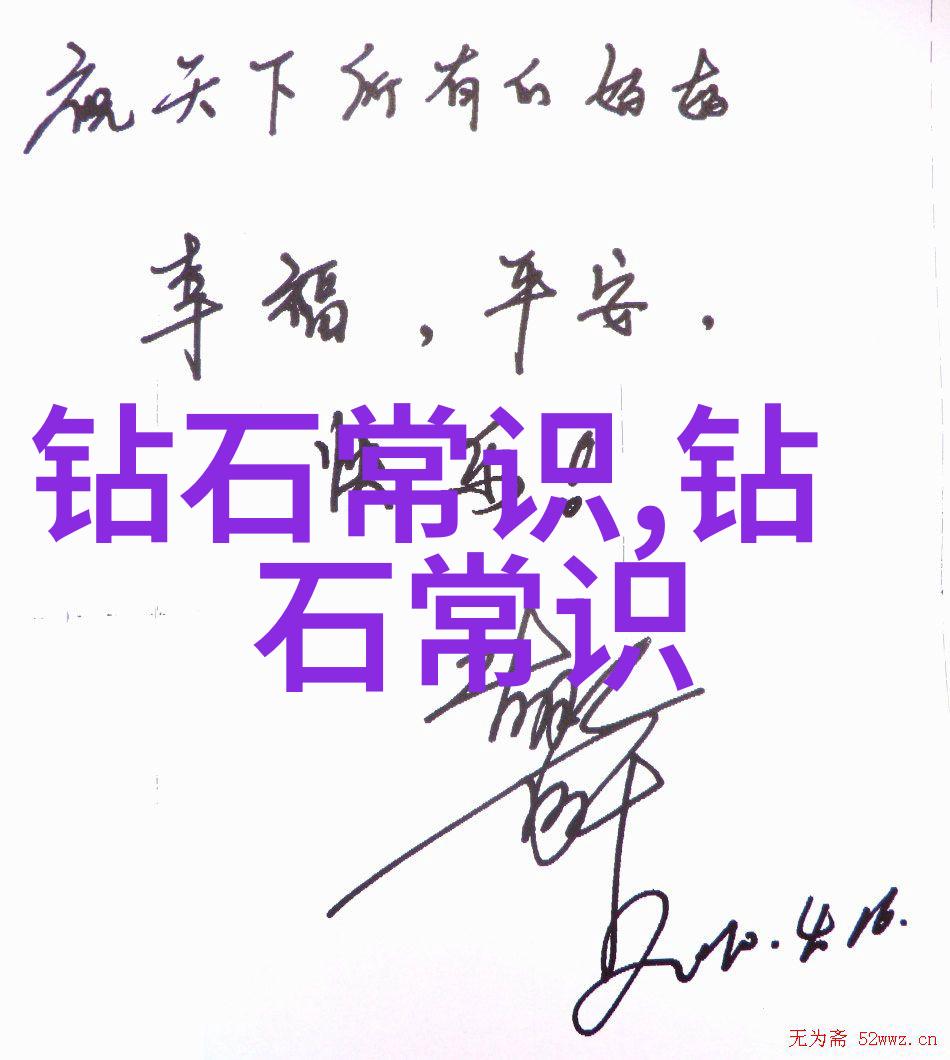 祝天下所有的妈妈
幸福,平安,
快乐!
钻石常识,钻
石常识
2010.4.16.
无为斋 52wwz.cn